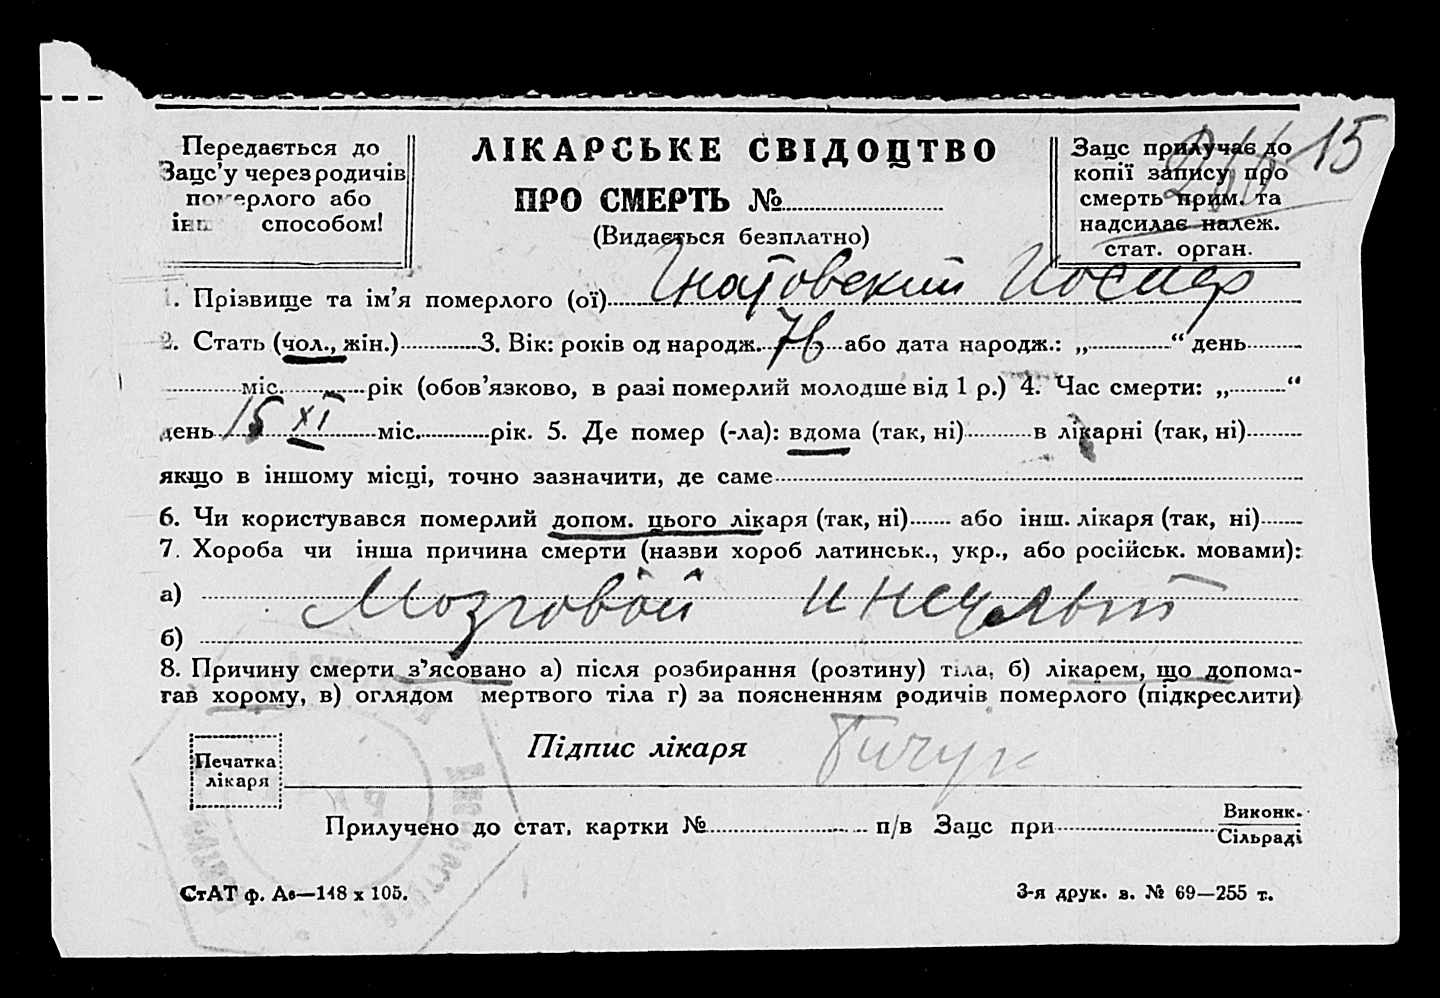 Передається до
Зацс'у через родичів
померлого або
способом!
ЛІКАРСЬКЕ СВІДОЦТВО
ПРО СМЕРТЬ №
(Видається безплатно)
Зацс прилучає до
копії запису про
смерть прим. та
надсилає належ.
стат. орган.
15
1. Прізвище та ім'я померлого (ої) Гнатовский Иосиф
2. Стать (чол., жін.) 3. Вік: років од народж. 76 або дата народж.: „ “ день
міс. рік (обов'язково, в разі померлий молодше від 1 р.) 4. Час смерти: „ “
день 15 XI міс. рік. 5. Де помер (-ла): вдома (так, ні) в лікарні (так, ні)
якщо в іншому місці, точно зазначити, де саме
6. Чи користувався померлий допом. цього лікаря (так, ні) або інш. лікаря (так, ні)
7. Хороба чи інша причина смерти (назви хороб латинськ., укр., або російськ. мовами):
а) Мозговой инсульт
б)
8. Причину смерти з'ясовано а) після розбирання (розтину) тіла, б) лікарем, що допома-
гав хорому, в) оглядом мертвого тіла г) за поясненням родичів померлого (підкреслити)
Печатка
лікаря
Підпис лікаря
Прилучено до стат. картки № п/в Зацс при Виконк.
Сільраді
СтАТ ф. Ав—148 х 105.
3-я друк. з. № 69—255 т.